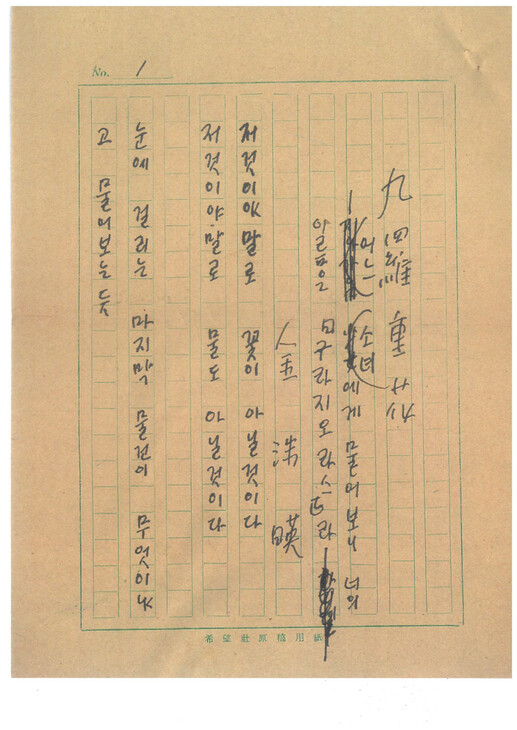 九羅重花
―어느 소녀에게 물어보니 너의
이름은 구라지오라스라―
金洙暎
저것이야말로 꽃이 아닐것이다
저것이야말로 물도 아닐것이다
눈에 걸리는 마지막 물건이 무엇이냐
고 물어보는 듯
No. 1
希望社原稿用紙